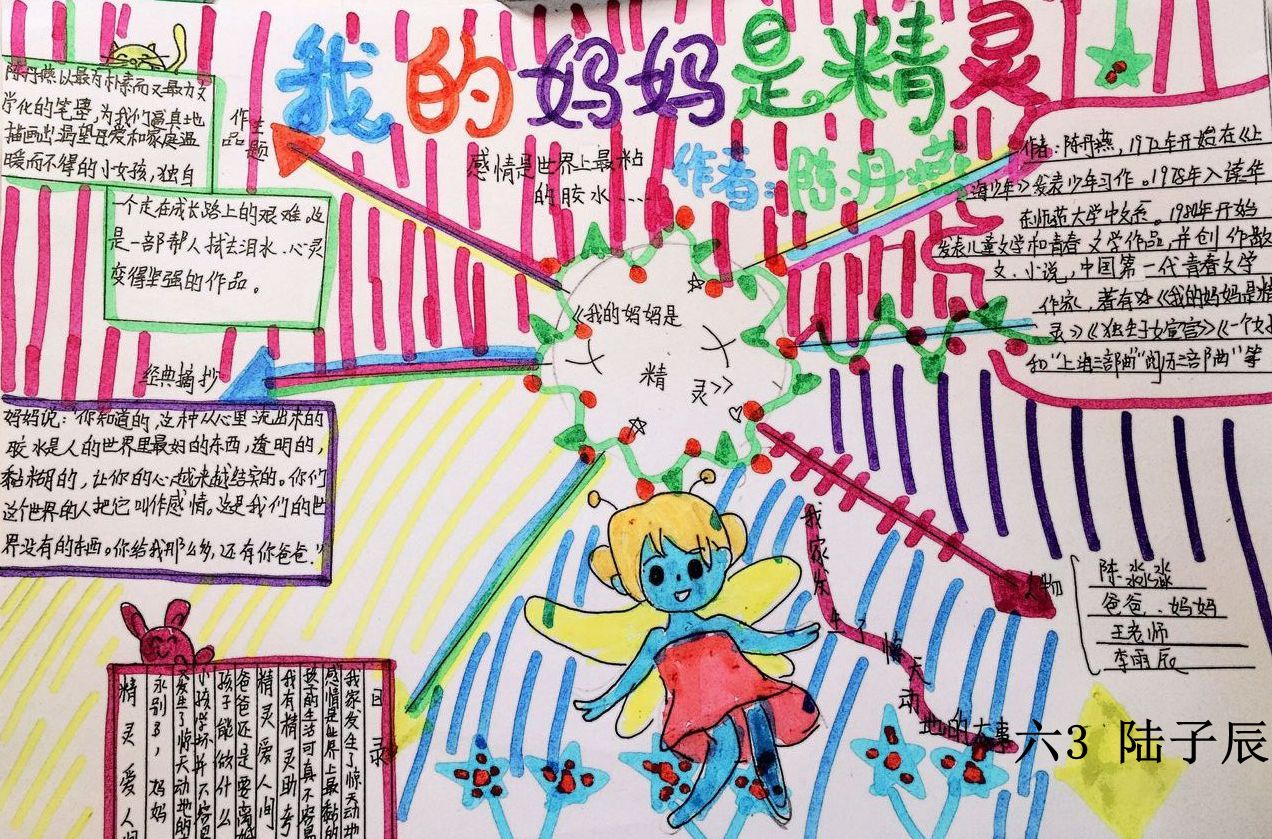 我的妈妈是精灵
作者:陈丹燕
感情是世界上最粘
的胶水....
作品主题
陈丹燕以最有朴素而又最力文
学化的笔墨,为我们写真地
描画出渴望母爱和家庭温
暖而不得的小女孩,独自
一个走在成长路上的艰难。这
是一部帮人拭去泪水、心灵
变得坚强的作品。
作者:陈丹燕,1972年开始在《上
海少年》发表少年习作。1978年入读华
东师范大学中文系。1980年开始
发表儿童文学和青春文学作品,并创作散
文、小说,中国第一代青春文学
作家,著有《我的妈妈是精
灵》《独生子女宣言》《一个女
和"上海三部曲""阅历三部曲"等
《我的妈妈是
精灵》
经典摘抄
妈妈说:"你知道的,这种从心里流出来的
胶水是人的世界里最好的东西,透明的,
黏糊的,让你的心越来越结实的。你们
这个世界的人把它叫作感情。这是我们的世
界没有的东西。你给我那么多,还有你爸爸。"
人物
陈淼淼
爸爸、妈妈
王老师
李雨辰
我家发生了惊天动地的大事
目录
我家发生了惊天动地
感情是世界上最黏的
孩子的生活可真不容易
我有精灵助考
精灵爱人间
爸爸还是要离婚
孩子能做什么
小孩学坏并不容易
发生了惊天动地的
永别了,妈妈
精灵爱人间
六3 陆子辰